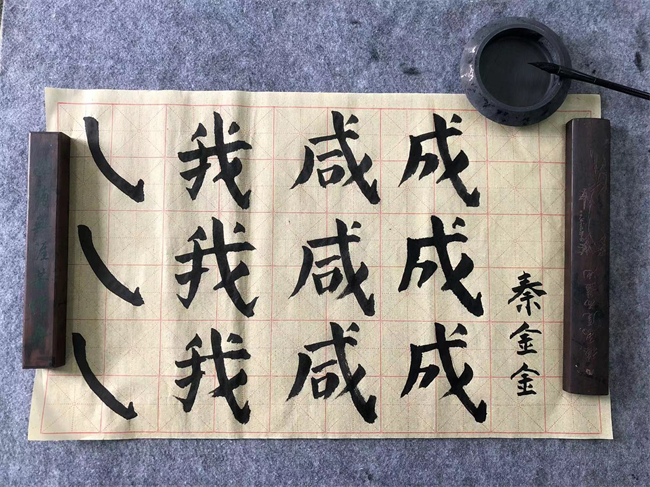 我我我
咸咸咸
成成成
秦金金